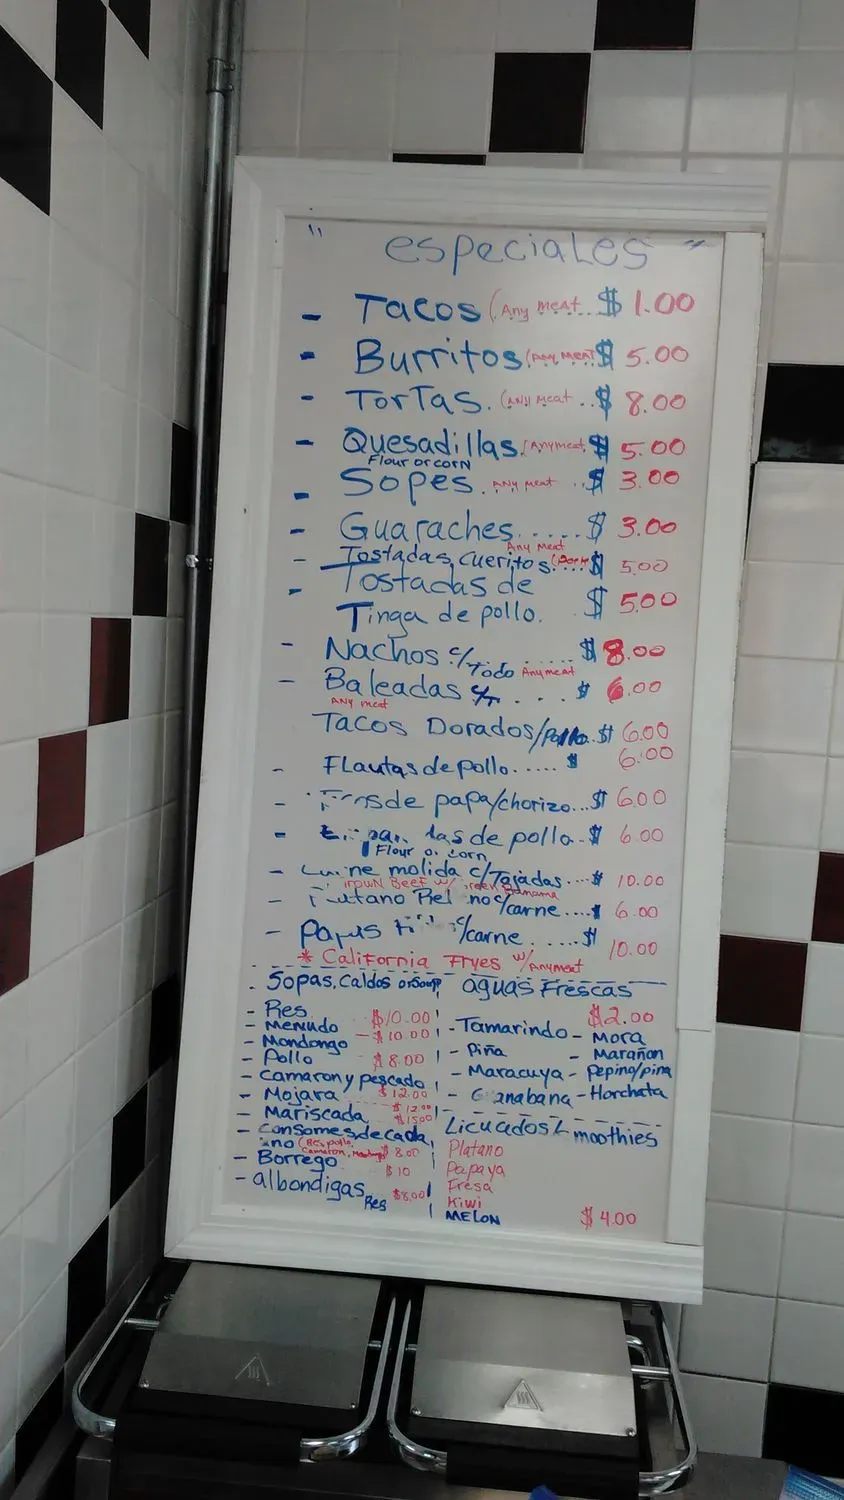 " especiales "
- Tacos (Any meat...$ 1.00
- Burritos (Any meat $ 5.00
- TorTas. (ANY Meat .. $ 8.00
- Quesadillas. (Anymeat. $ 5.00
Flour or corn
- Sopes. ANY meat .. $ 3.00
- Guaraches..... $ 3.00
Any Meat
- Tostadas cueritos (Pork.... $ 5.00
- Tostadas de
Tinga de pollo. $ 5.00
- Nachos c/Todo Anymeat $ 8.00
- Baleadas c/T . . . $ 6.00
ANY meat
Tacos Dorados/Pollo. $ 6.00
- FLautas de pollo..... $ 6.00
- de papa/chorizo... $ 6.00
- das de pollo. $ 6.00
Flour or corn
- molida c/Tajadas.... $ 10.00
Beef w/
- c/carne.... $ 6.00
- c/carne. ....$ 10.00
* California Fryes w/Anymeat
- Sopas, Caldos or Soup aguas Frescas
- Res $10.00 $2.00
- Menudo - Tamarindo - Mora
- Mondongo - $10.00 - Piña - Marañon
- Pollo $8.00 - Maracuya - Pepino/piña
- Camaron y pescado - anabana - Horchata
- Mojara $12.00
- Mariscada $12.00 Licuados moothies
$15.00
- Consomes de cada Platano
uno (Res, pollo, Papaya
Camaron, $8.00
- Borrego $10 Fresa
- albondigas $8.00 Kiwi
Res MELON $4.00